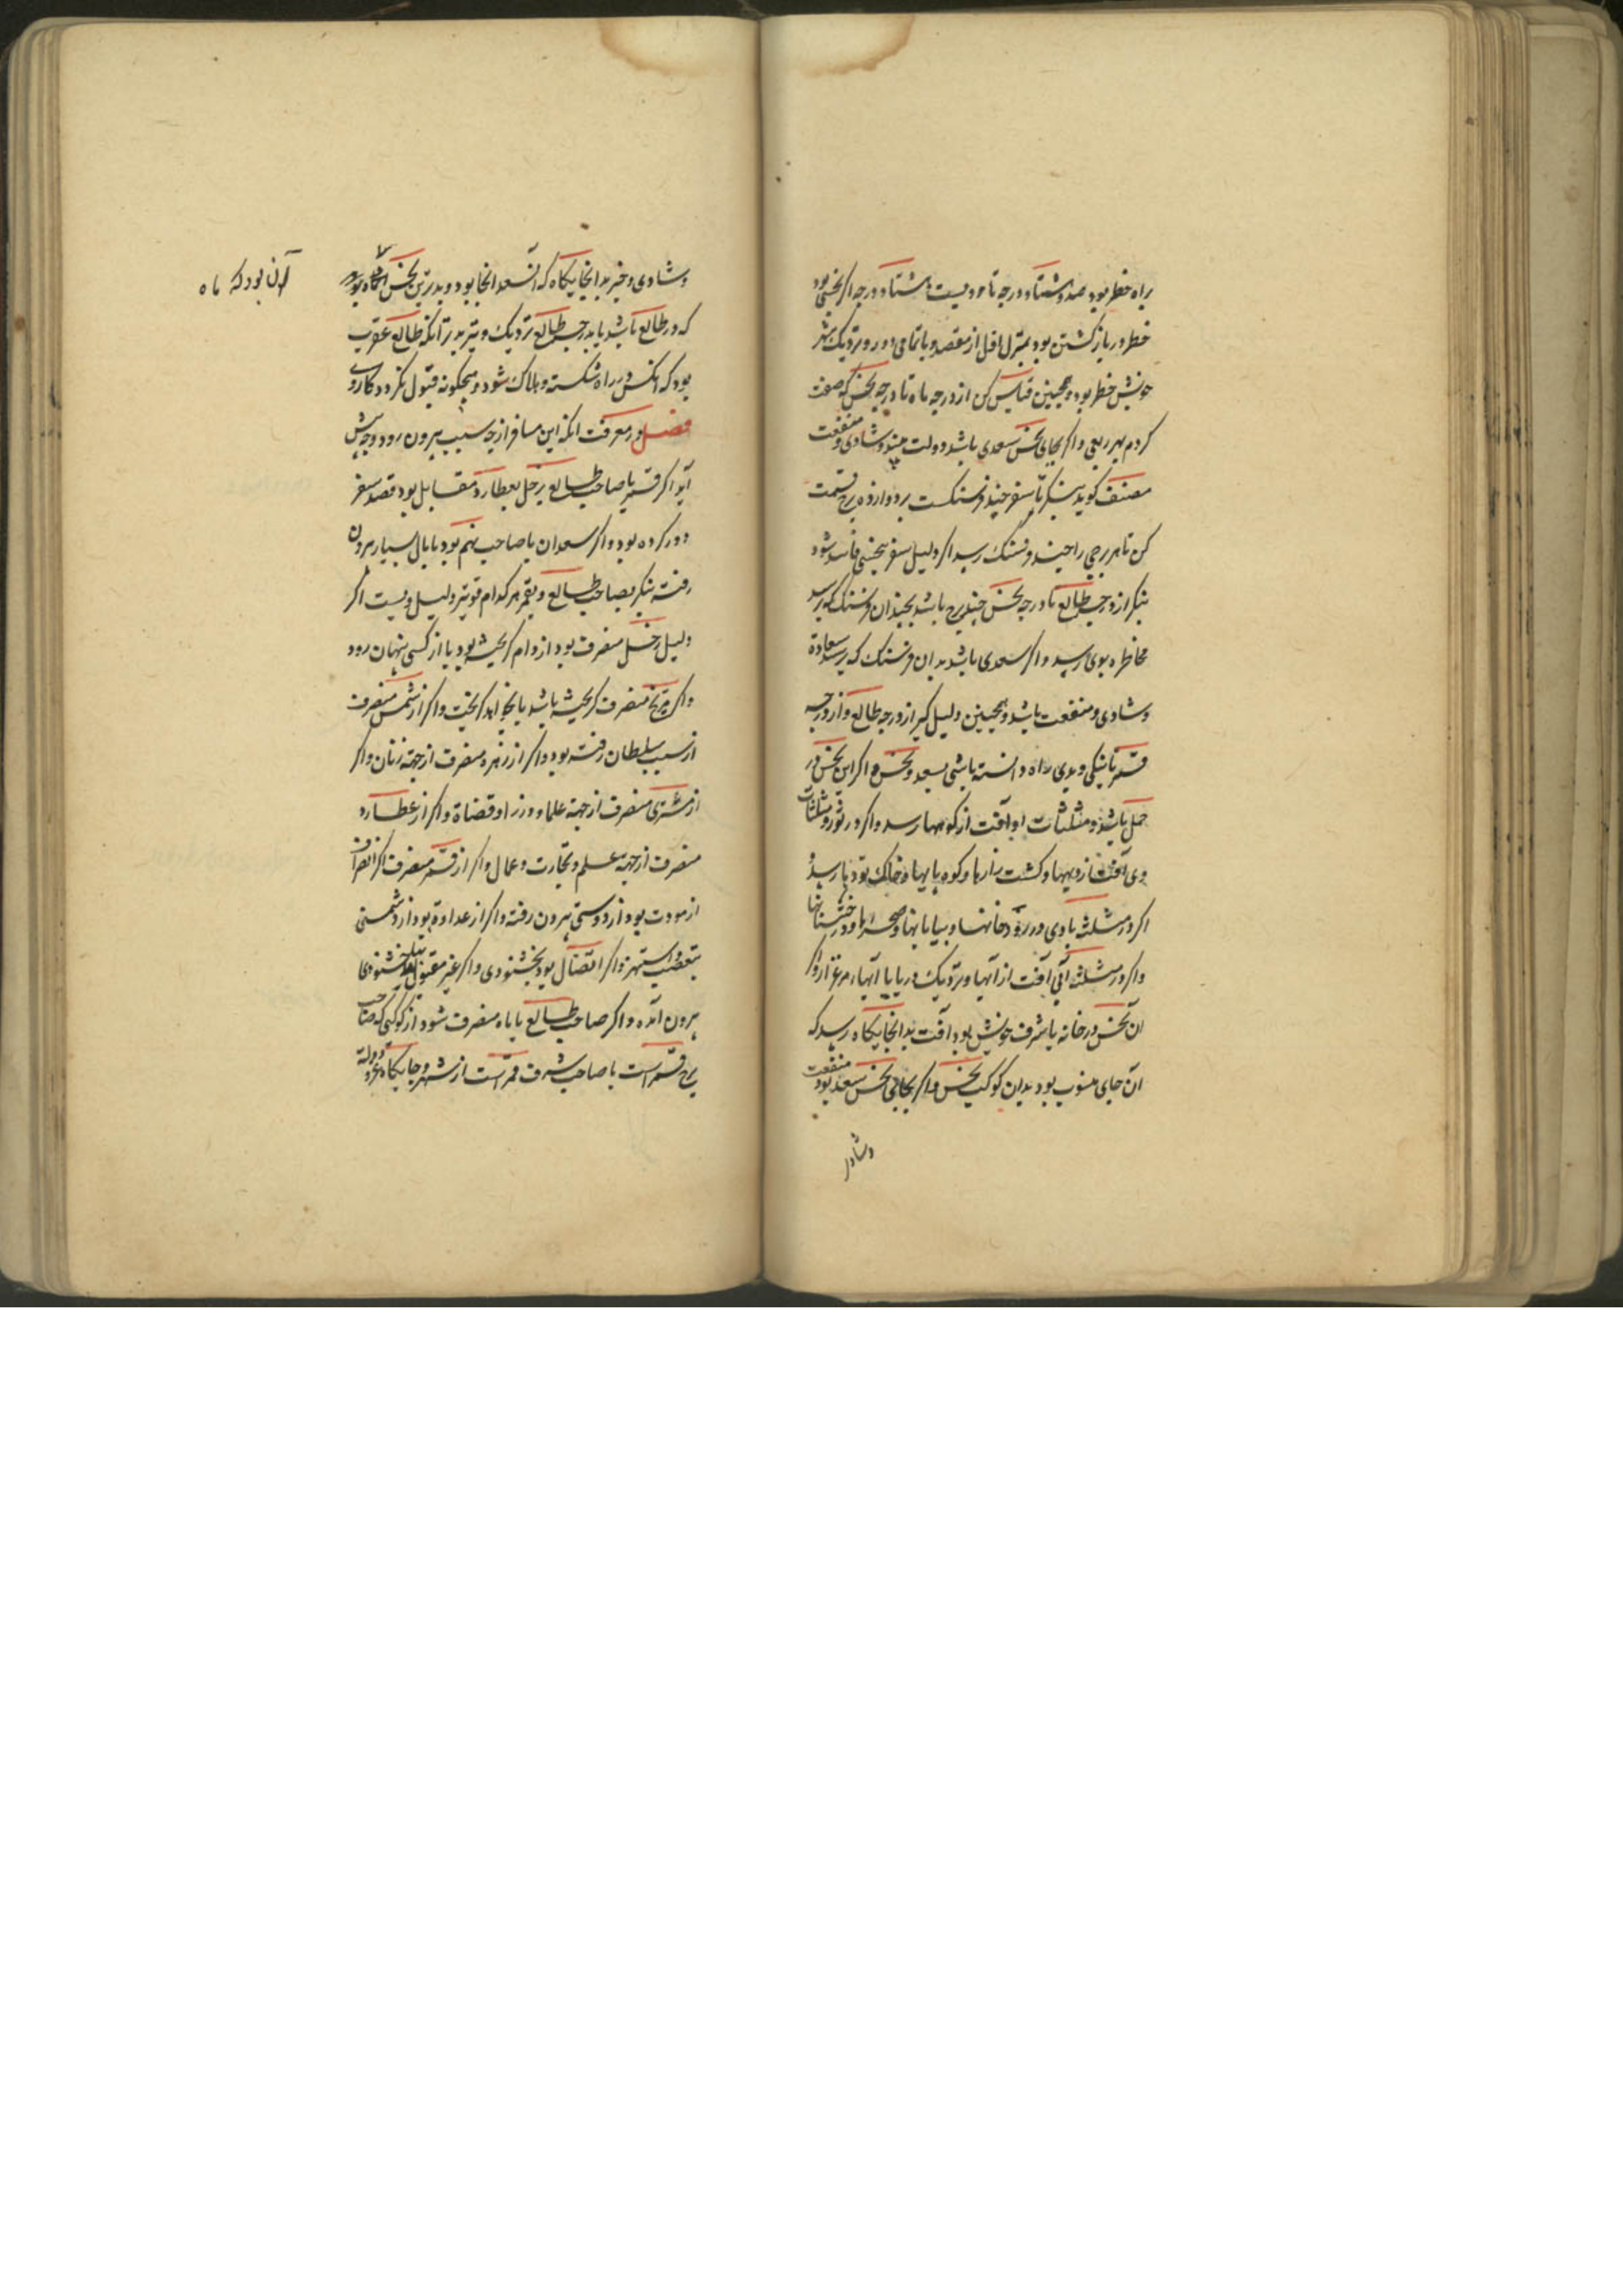 براه خطر بود صد و هشتاد درجه تا دویست و هشتاد درجه اگر نحسی بود
خطر در باز کشتن بود بمنزل اقل از مقصد و یا تمامی دور و نزدیک بشهر
خویش خطر بود و همچنین قیاس کن از درجه ماه تا درجه نحس که صفت
کردم بهر ربعی و اگر بجای نحس سعدی باشد دولت بیند و شادی و منفعت
مصنف کوید بنگر تا سفر چند فرسنگست بر دوازده برج قسمت
کن تا هر برجی را چند فرسنگ رسد اگر دلیل سفر بنحسی فاسد شود
بنگر از درجه طالع تا درجه نحس چند برج باشد بچندان فرسنگ که رسد
مخاطره بوی رسد و اگر سعدی باشد بدان فرسنگ که رسد سعادة
و شادی و منفعت باشد و همچنین دلیل کیر از درجه طالع و از درجه
قمر تا نیکی و بدی راه دانسته باشی بسعد و نحس و اگر این نحس در
حمل باشد و مثلثات او آفت از کوهها رسد و اگر در ثور و مثلثات
وی آفت از دیهها و کشت زارها و کوه پایها و خاک تودها رسد
اگر در مثلثه بادی در رودخانها و بیابانها و صحراها و درختستانها
و اگر در مثلثه آبی آفت از آبها و نزدیک دریا یا آبها، مرغزار و اگر
ان نحس در خانه یا شرف خویش بود آفت بدانجایکاه رسد که
آن جای منسوب بود بدان کوکب نحس و اگر بجای نحس سعد بود منفعت
و شادی
و شادی و خیر بدانجایکاه که آن سعد آنجا بود و بدترین نحس آنگاه بود
آن بود که ماه
که در طالع باشد یا بدرجه طالع نزدیک و بتر بدتر آنکه طالع عقرب
بود که آنکس در راه شکسته و هلاک شود و هیچکونه قبول نکردد کار وی
فصل در معرفت آنکه این مسافر از چه سبب بیرون رود و چه پیش
آید اگر قمر یا صاحب طالع بزحل بعطارد مقابل بود قصد سفر
دور کرده بود و اگر سعدان با صاحب نهم بود با مال بسیار بیرون
رفته بنگر بصاحب طالع و بقمر هر کدام قویتر دلیل ویست اگر
دلیل زحل منصرف بود از وام گریخته بود یا از کسی پنهان رود
و اگر مریخ منصرف گریخته باشد یا بخواهد گریخت و اگر از شمس منصرف
از سبب سلطان رفته بود و اگر از زهره منصرف از جهة زنان و اگر
از مشتری منصرف از جهة علما و وزرا و قضاة و اگر از عطارد
منصرف از جهة علم و تجارت و عمال و اگر از قمر منصرف اگر انصراف
از مودت بود از دوستی بیرون رفته و اگر از عداوة بود از دشمنی
بتعصب و ستیهز و اگر اتصال بود بخشنودی و اگر غیر مقبول بناخشنودی
بیرون آمده و اگر صاحب طالع یا ماه منصرف شود از کوکبی که صاحب
برج قمر است یا صاحب شرف قمر است از شهر و جایکاه و عز و دولة